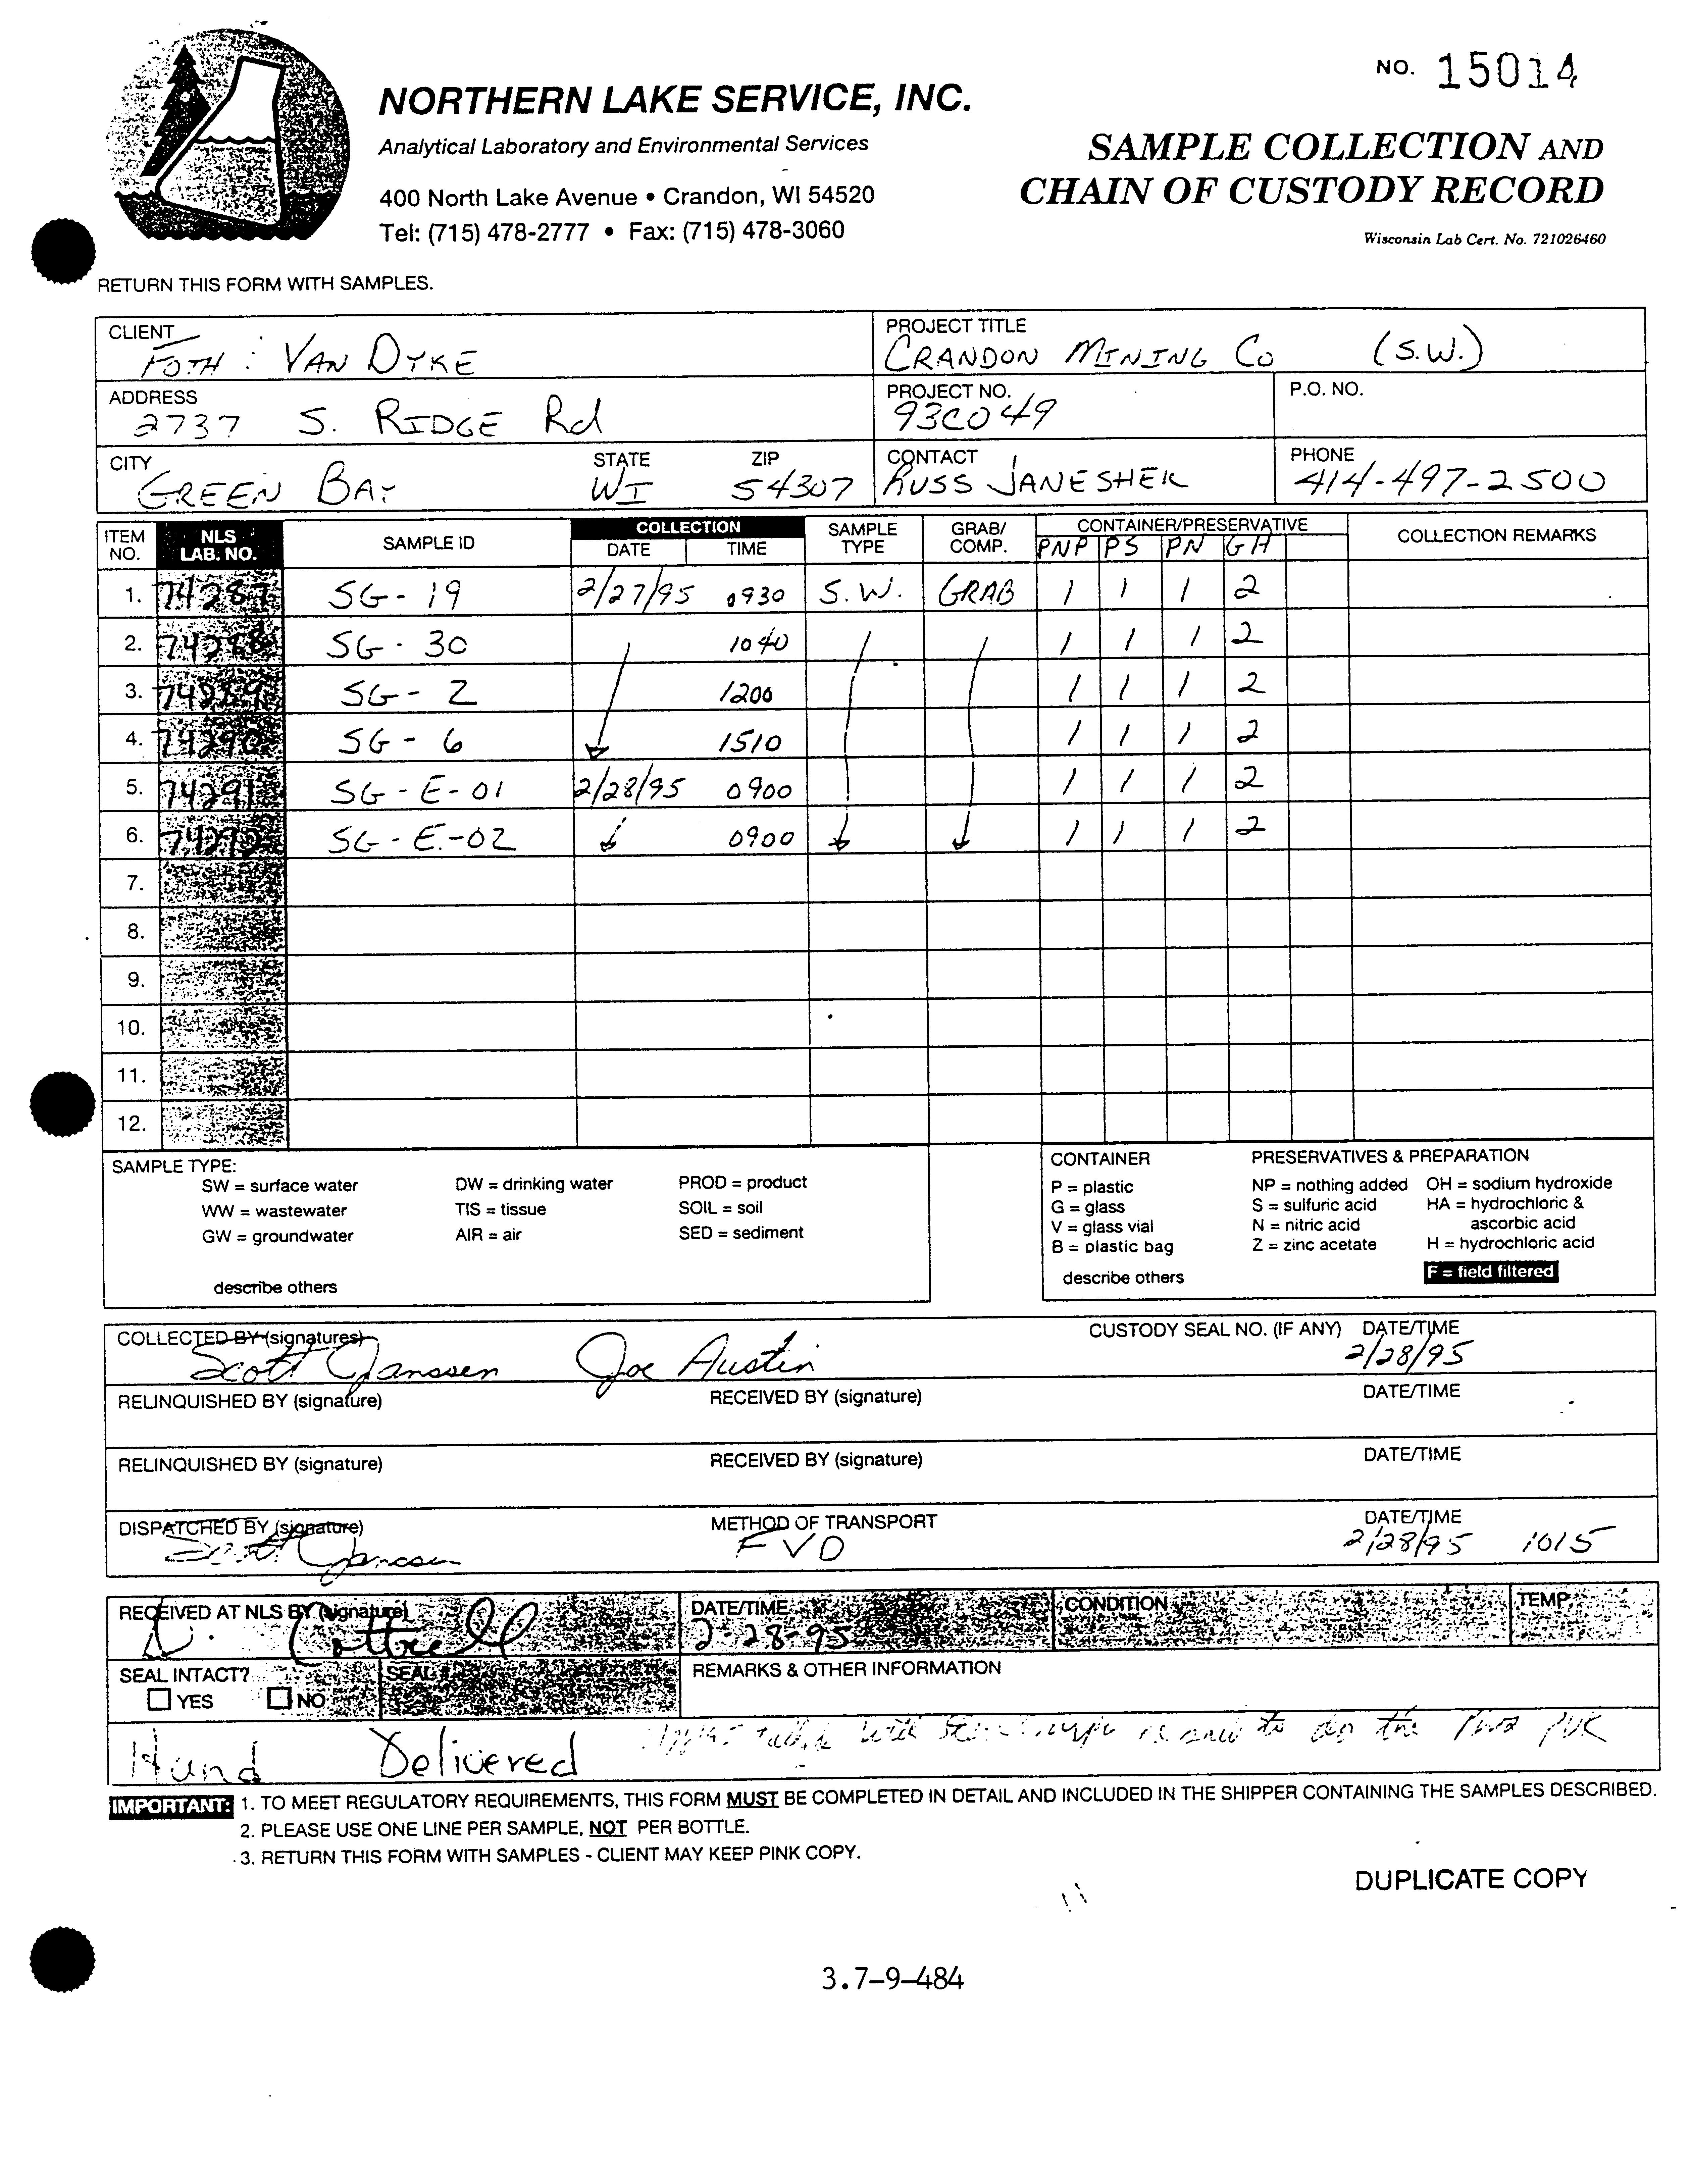 NO. 15014
NORTHERN LAKE SERVICE, INC.
Analytical Laboratory and Environmental Services
400 North Lake Avenue • Crandon, WI 54520
Tel: (715) 478-2777 • Fax: (715) 478-3060
SAMPLE COLLECTION AND
CHAIN OF CUSTODY RECORD
Wisconsin Lab Cert. No. 721026460
RETURN THIS FORM WITH SAMPLES.
CLIENT PROJECT TITLE
FOTH : VAN DYKE CRANDON MINING CO (S.W.)
ADDRESS PROJECT NO. P.O. NO.
2737 S. RIDGE Rd 93C049
CITY STATE ZIP CONTACT PHONE
GREEN BAY WI 54307 RUSS JANESHEK 414-497-2500
ITEM NO. NLS LAB. NO. SAMPLE ID COLLECTION DATE TIME SAMPLE TYPE GRAB/ COMP. CONTAINER/PRESERVATIVE COLLECTION REMARKS
PNP PS PN GH
1. 74287 SG-19 2/27/95 0930 S.W. GRAB 1 1 1 2
2. 74288 SG-30 1040 1 1 1 2
3. 74289 SG-2 1200 1 1 1 2
4. 74290 SG-6 1510 1 1 1 2
5. 74291 SG-E-01 2/28/95 0900 1 1 1 2
6. 74292 SG-E-02 0900 1 1 1 2
7.
8.
9.
10.
11.
12.
SAMPLE TYPE:
SW = surface water DW = drinking water PROD = product
WW = wastewater TIS = tissue SOIL = soil
GW = groundwater AIR = air SED = sediment
describe others
CONTAINER PRESERVATIVES & PREPARATION
P = plastic NP = nothing added OH = sodium hydroxide
G = glass S = sulfuric acid HA = hydrochloric &
V = glass vial N = nitric acid ascorbic acid
B = plastic bag Z = zinc acetate H = hydrochloric acid
describe others F = field filtered
COLLECTED BY (signatures) CUSTODY SEAL NO. (IF ANY) DATE/TIME
Scott Janssen Joe Austin 2/28/95
RELINQUISHED BY (signature) RECEIVED BY (signature) DATE/TIME
RELINQUISHED BY (signature) RECEIVED BY (signature) DATE/TIME
DISPATCHED BY (signature) METHOD OF TRANSPORT DATE/TIME
Scott Janssen FVD 2/28/95 1015
RECEIVED AT NLS BY (signature) DATE/TIME CONDITION TEMP.
Cottrell 2-28-95
SEAL INTACT? SEAL # REMARKS & OTHER INFORMATION
YES NO
Hand Delivered with to do the
IMPORTANT: 1. TO MEET REGULATORY REQUIREMENTS, THIS FORM MUST BE COMPLETED IN DETAIL AND INCLUDED IN THE SHIPPER CONTAINING THE SAMPLES DESCRIBED.
2. PLEASE USE ONE LINE PER SAMPLE, NOT PER BOTTLE.
3. RETURN THIS FORM WITH SAMPLES - CLIENT MAY KEEP PINK COPY.
DUPLICATE COPY
3.7-9-484